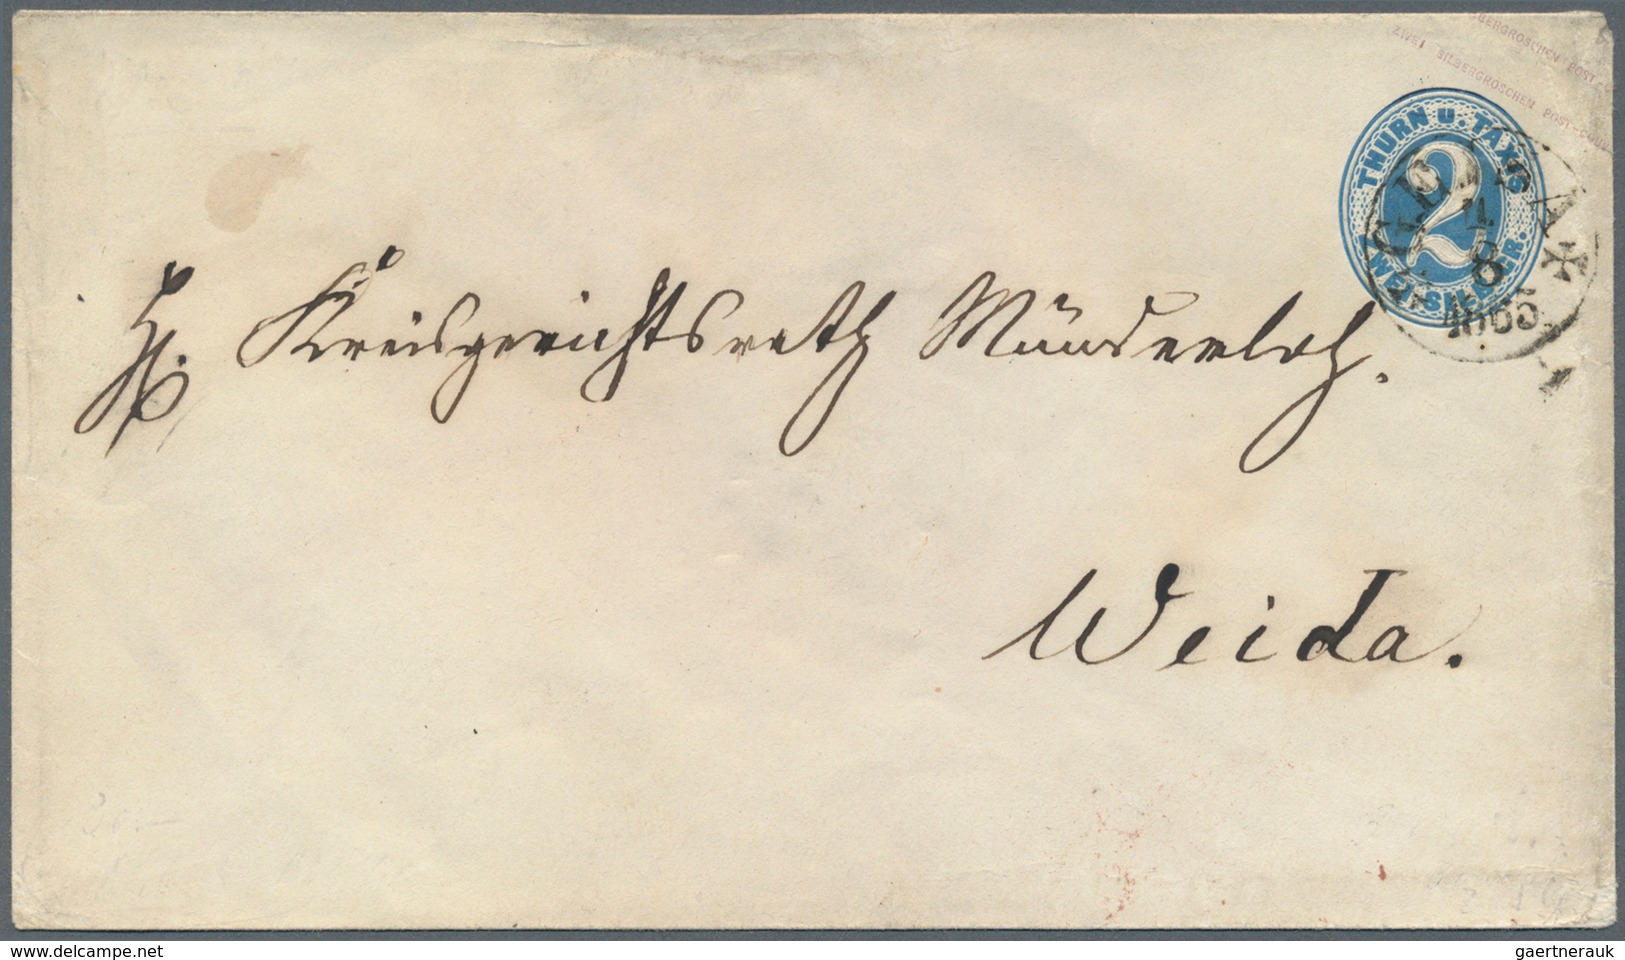 SILBERGROSCHEN POST-
ZWEI SILBERGROSCHEN POST-COUV
THURN U. TAXIS
2
ZWEI SILB. GR.
8
H. Kreisgerichtsrath Münderloh.
Weida.
delcampe.net
gaertnerauk